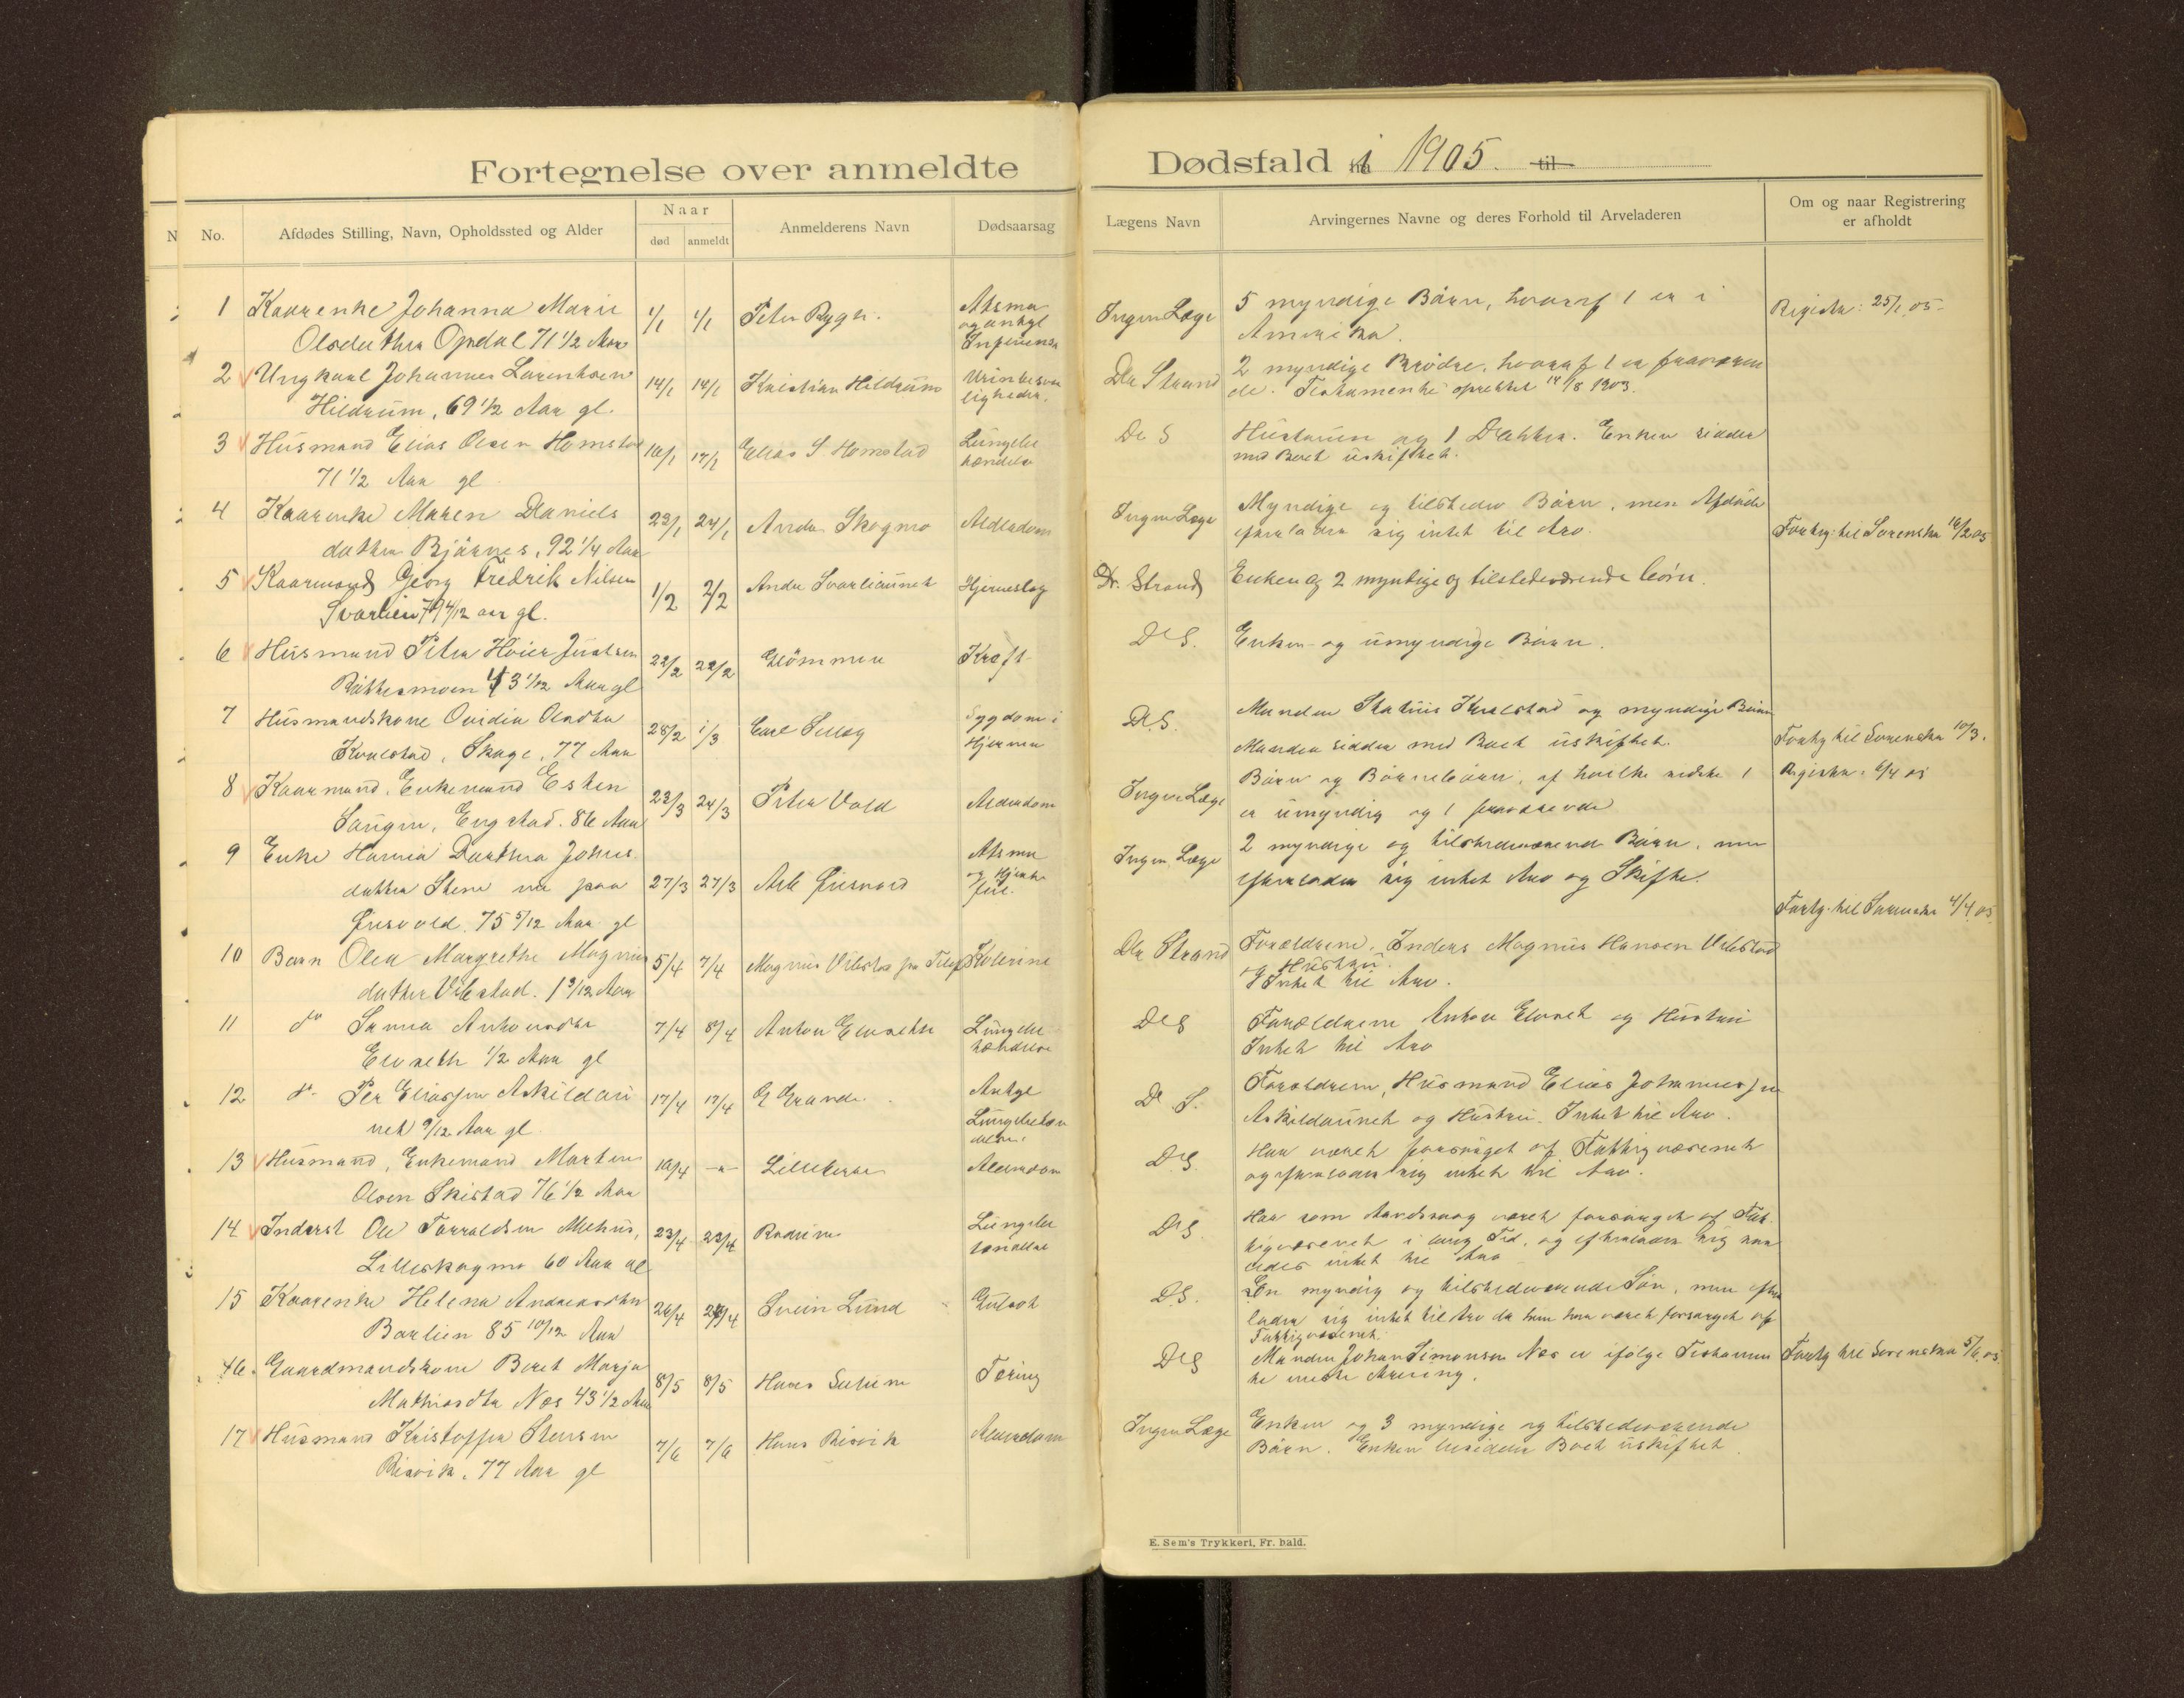 Fortegnelse over anmeldte Dødsfald i 1905. til
No.
Afdødes Stilling, Navn, Opholdssted og Alder
Naar
død
anmeldt
Anmelderens Navn
Dødsaarsag
Lægens Navn
Arvingernes Navne og deres Forhold til Arveladeren
Om og naar Registrering
er afholdt
1 Kaarenke Johanna Marie 1/1 1/1 Peter Rygh. Atsma Ingen Læge 5 myndige Børn, hvoraf 1 er i Registr: 25/1 05.
Olsdatter Opdal 71 1/2 Aar Amerika.
2 Ungkarl Johannes Larentsen 14/1 14/1 Kristian Hildrum Urinbesvæ Dr Strand 2 myndige Brødre, hvoraf 1 er fraværen
Hildrum, 69 1/2 Aar gl. ligheder. de. Testamente oprettet 14/8 1903.
3 Husmand Elias Olsen Homstad 16/1 17/1 Elias S Homstad Lungebe Dr S Hustruen og 1 Datter. Enken sidder
71 1/2 Aar gl tændelse med Boet uskiftet.
4 Kaarenke Maren Daniels 23/1 24/1 Anders Skogmo Alderdom Ingen Læge Myndige og tilstede Børn, men Afdøde
datter Bjørnes, 92 1/4 Aar efterlader sig intet til Arv. Fortg. til Sorenskr 16/2 05
5 Kaarmand Georg Fredrik Nilsen 1/2 2/2 Andr Svarliaunet Hjerneslag Dr. Strand Enken og 2 myndige og tilstedeværende børn.
Svarlien 79 4/12 aar gl.
6 Husmand Peter Høier Justsen 22/2 22/2 Glömmen Kræft Dr S. Enken og umyndige Børn.
53 1/12 Aar gl
7 Husmandskone Ovidia Olsdtr 28/2 1/3 Carl Selløg Sygdom i Dr S. Manden Statius Kvalstad og myndige Børn
Kvalstad, Skage, 77 Aar Hjernen Manden sidder med Boet uskiftet. Fortg til Sorenskr 10/3.
8 Kaarmand, Enkemand Esten 23/3 24/3 Peter Vold Alderdom Ingen Læge Børn og Børnebørn, af hvilke sidste 1 Registr. 6/4 05
Engstad. 86 Aar er umyndig og 1 fraværende
9 Enke Dorthea Johns 27/3 27/3 Atsma Ingen Læge 2 myndige og tilstedeværende Børn, men
datter Stene nu paa og Hjerte efterlader sig intet Arv og Skifte.
75 5/12 Aar gl feil. Fortg. til Sorenskr 4/4 05
10 Barn Olea Margrethe Magnus 5/4 7/4 Magnus Vibstad pr Telef Kolerine Dr Strand Forældrene, Inders Magnus Hansen Vibstad
datter Vibstad. 1 9/12 Aar og Hustru.
Intet til Arv.
11 do Sanna Antonsdtr 7/4 8/4 Anton Elvseth Lungebe Dr S Forældrene Anton Elvset og Hustru
Elvseth 1/2 Aar gl tændelse Intet til Arv
12 do Per Eliassen Askildau 17/4 17/4 G Grande Dr S. Forældrene, Husmand Elias Johannessen
net 9/12 Aar gl Lungebetæn Askildaunet og Hustru. Intet til Arv.
delse.
13 Husmand, Enkemand Morten 19/4 -"- Alderdom Dr S. Har været forsørget af Fattigvæsenet
Olsen Skistad 76 1/2 Aar og efterlader sig intet til Arv.
14 Inderst Ole Torvaldsen Mehus, 23/4 23/4 Lungebe Dr S. Har som Aandssvag været forsørget af Fat
Lilleskogmo 60 Aar gl tændelse tigvæsenet i lang Tid, og efterlader sig saa
ledes intet til Arv
15 Kaarenke Helena Andreasdtr 26/4 27/4 Svein Lund Gulsot Dr S. En myndig og tilstedeværende Søn, men efter
Barlien 85 10/12 Aar lader sig intet til Arv da hun har været forsørget af
Fattigvæsenet.
16. Gaardmandskone Beret Marja 8/5 8/5 Hans Tæring Dr S Manden Johan Simonsen Næs er ifølge Testamen Fortg til Sorenskr 5/6 05
Mathiasdtr Næs 43 1/2 Aar te eneste Arving.
17 Husmand Kristoffer Stensen 7/6 7/6 Hans Risvik Alderdom Ingen Læge Enken og 3 myndige og tilstedeværende
Risvik, 77 Aar gl Børn. Enken besidder Boet uskiftet.
E. Sem's Trykkeri, Fr. hald.